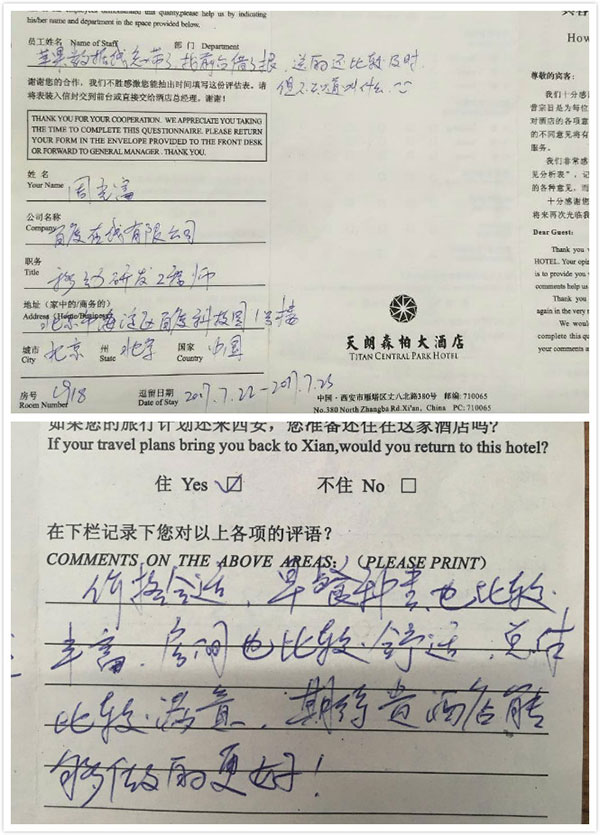 his/her name and department in the space provided below.
员工姓名 Name of Staff 部 门 Department
苹果数据线忘带了,找前台借了根,送的还比较及时.
但不知道叫什么.
谢谢您的合作,我们不胜感激您能抽出时间填写这份评估表。请
将表装入信封交到前台或直接交给酒店总经理。谢谢!
THANK YOU FOR YOUR COOPERATION. WE APPRECIATE YOU TAKING
THE TIME TO COMPLETE THIS QUESTIONNAIRE. PLEASE RETURN
YOUR FORM IN THE ENVELOPE PROVIDED TO THE FRONT DESK
OR FORWARD TO GENERAL MANAGER . THANK YOU.
姓 名
Your Name
公司名称
Company
百度在线有限公司
职务
Title
移动研发工程师
地址(家中的/商务的)
Address (Home/Business)
北京市海淀区百度科技园1号楼
城市 北京 州 北京 国家 中国
City State Country
房号 逗留日期 2017.7.22-2017.7.25
Room Number Date of Stay
天朗森柏大酒店
TITAN CENTRAL PARK HOTEL
中国·西安市雁塔区丈八北路380号 邮编: 710065
No.380 North Zhangba Rd.Xi'an, China PC: 710065
How
尊敬的宾客:
我们十分感
营宗旨是为每位
对酒店的各项意
的不同意见将有
服务。
我们非常感
见分析表",记
的各种意见,而
十分感谢您
将来再次光临我
Dear Guest:
Thank you
HOTEL. Your opin
is to provide you
comments help us
Thank you
again in the very
We would
complete this qu
your comments a
如果您的旅行计划还来西安,您准备还住在这家酒店吗?
If your travel plans bring you back to Xian,would you return to this hotel?
住 Yes ☑ 不住 No □
在下栏记录下您对以上各项的评语?
COMMENTS ON THE ABOVE AREAS: (PLEASE PRINT)
价格合适、早餐种类也比较
丰富、房间也比较舒适、总体
比较满意、期待贵酒店能
够做的更好!